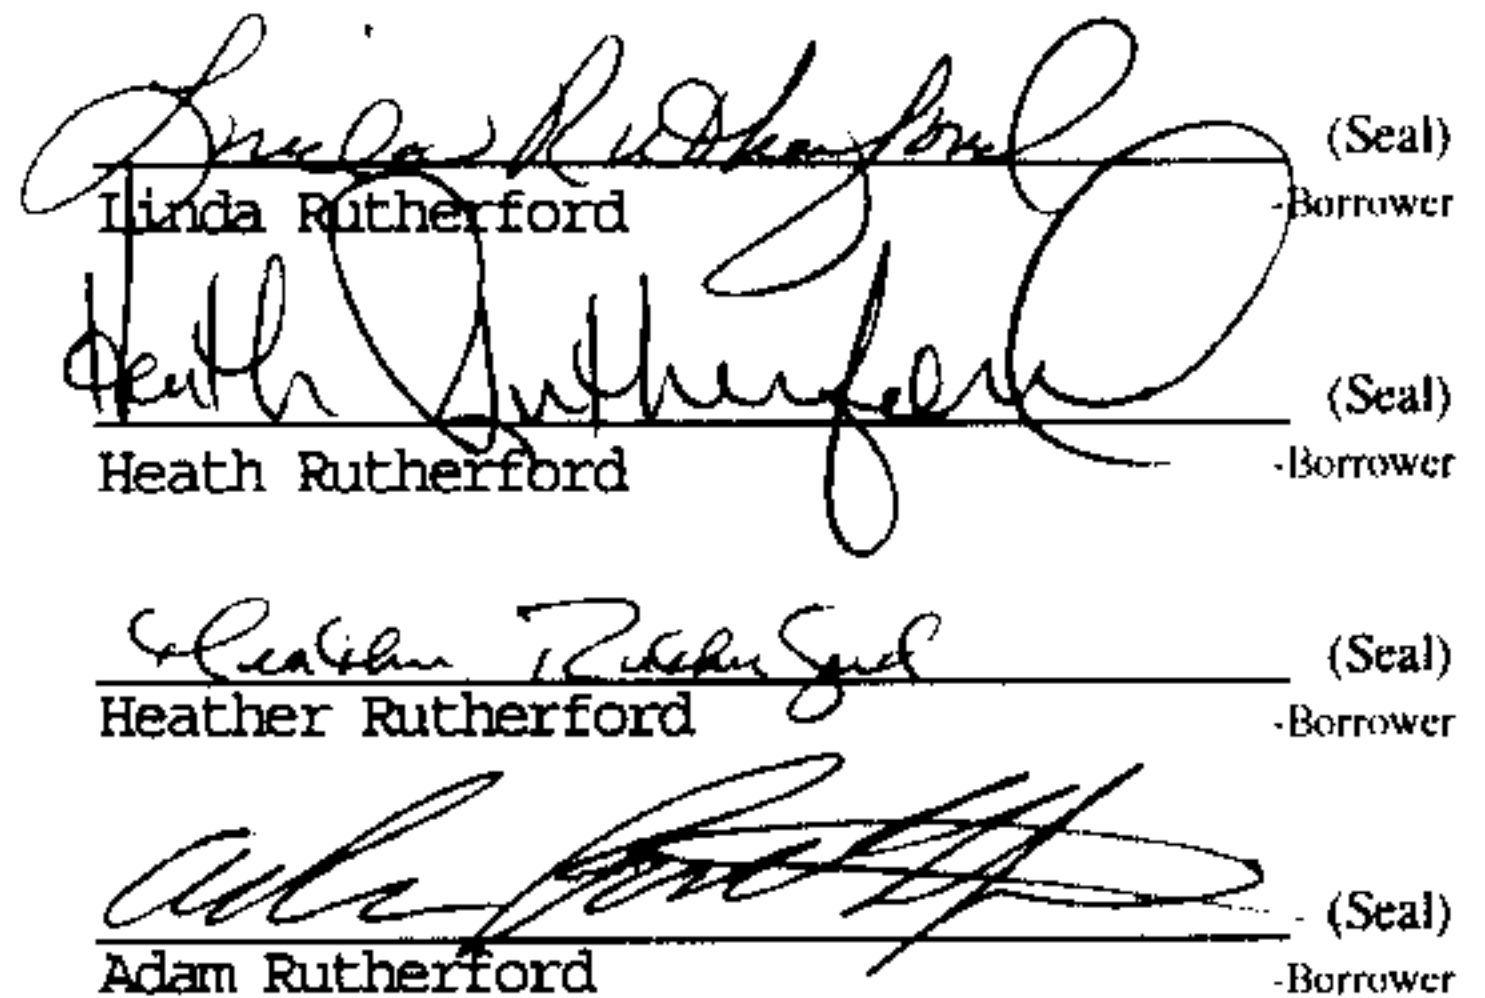 Linda Rutherford (Seal)
Linda Rutherford -Borrower
Heath Rutherford (Seal)
Heath Rutherford -Borrower
Heather Rutherford (Seal)
Heather Rutherford -Borrower
Adam Rutherford (Seal)
Adam Rutherford -Borrower